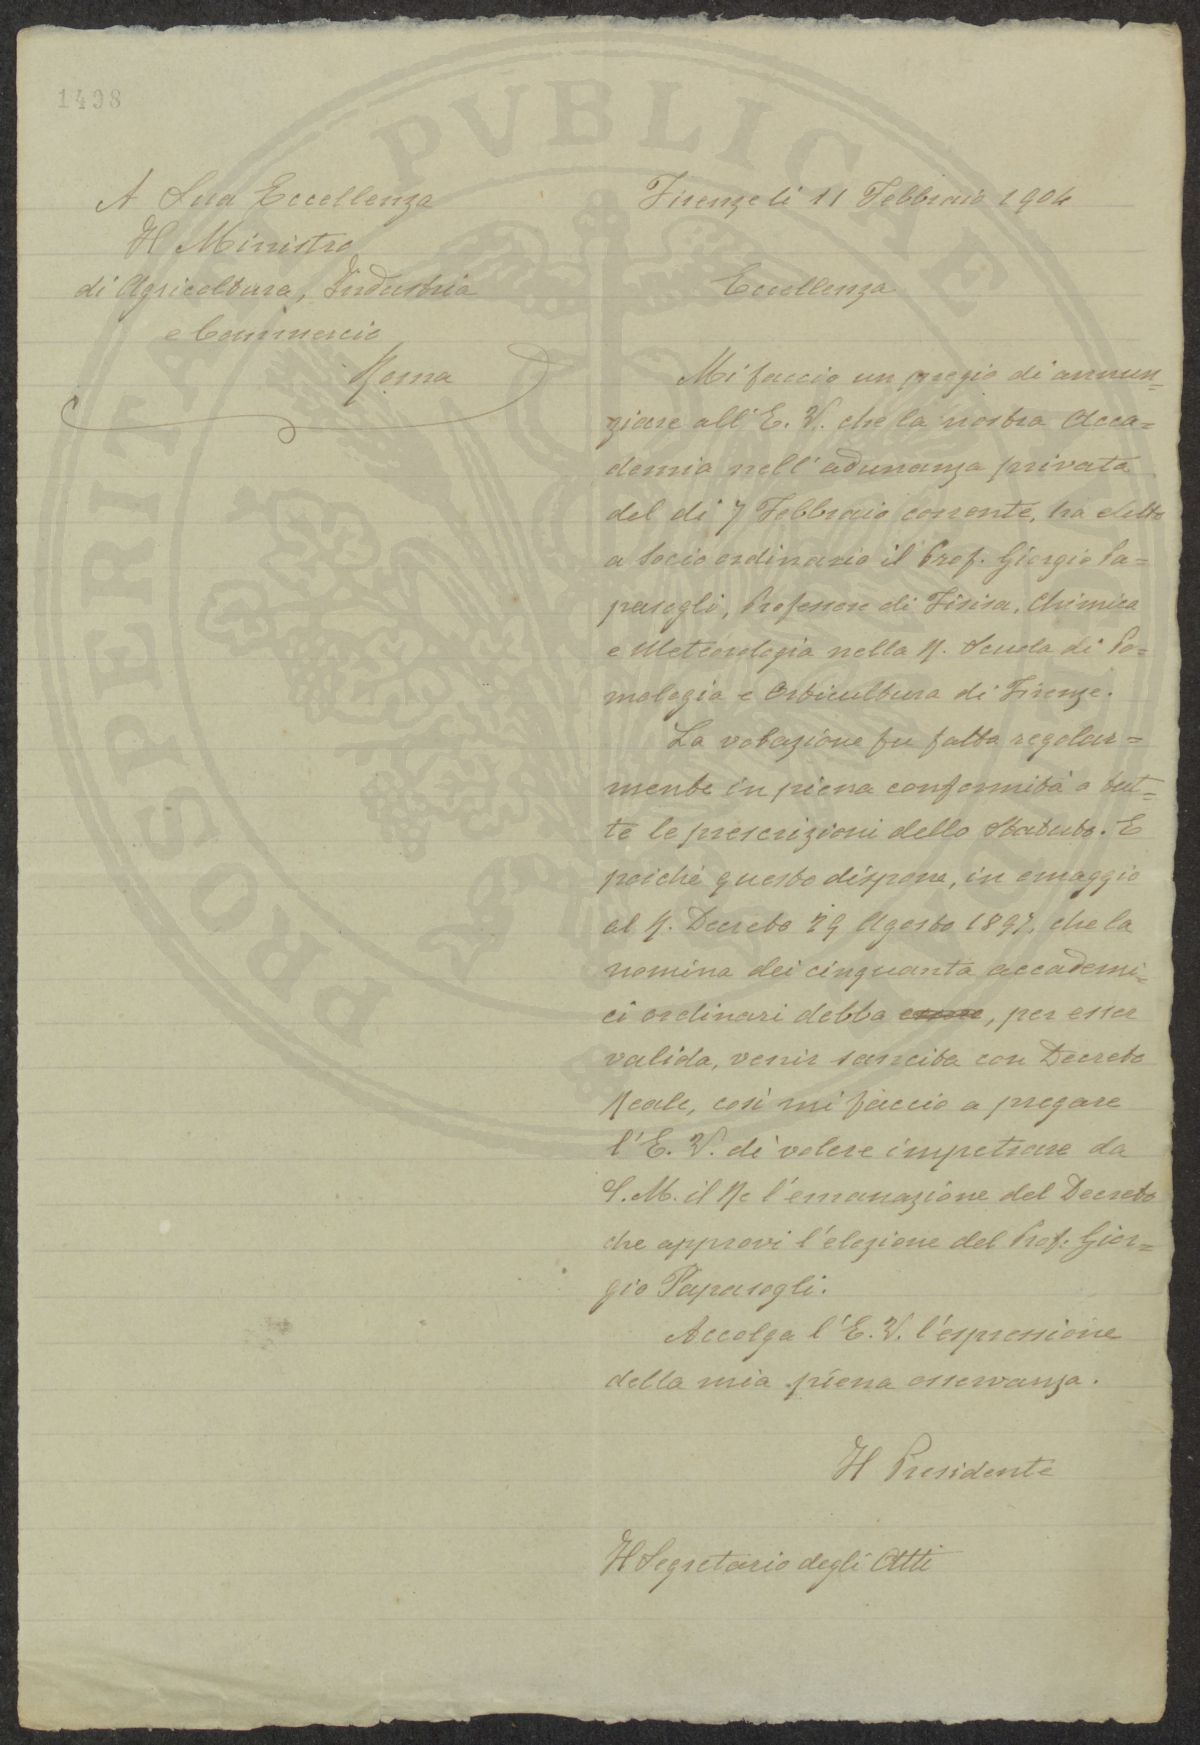 1408
A Sua Eccellenza
Il Ministro
di Agricoltura, Industria
e Commercio
Roma
Firenze li 11 Febbraio 1904
Eccellenza
Mi faccio un pregio di annun=
ziare all'E. V. che la nostra Acca=
demia nell'adunanza privata
del dì 7 Febbraio corrente, ha eletto
a Socio ordinario il Prof. Giorgio Pa=
pasogli, Professore di Fisica, Chimica
e Meteorologia nella R. Scuola di Po=
mologia e Orticultura di Firenze.
La votazione fu fatta regolar=
mente in piena conformità a tut=
te le prescrizioni dello Statuto. E
poichè questo dispone, in omaggio
al R. Decreto 29 Agosto 1897, che la
nomina dei cinquanta accademi=
ci ordinari debba essere, per esser
valida, venir sancita con Decreto
Reale, così mi faccio a pregare
l'E. V. di volere impetrare da
S. M. il Re l'emanazione del Decreto
che approvi l'elezione del Prof. Gior=
gio Papasogli.
Accolga l'E. V. l'espressione
della mia piena osservanza.
Il Presidente
Il Segretario degli Atti
PROSPERITATI PVBLICAE